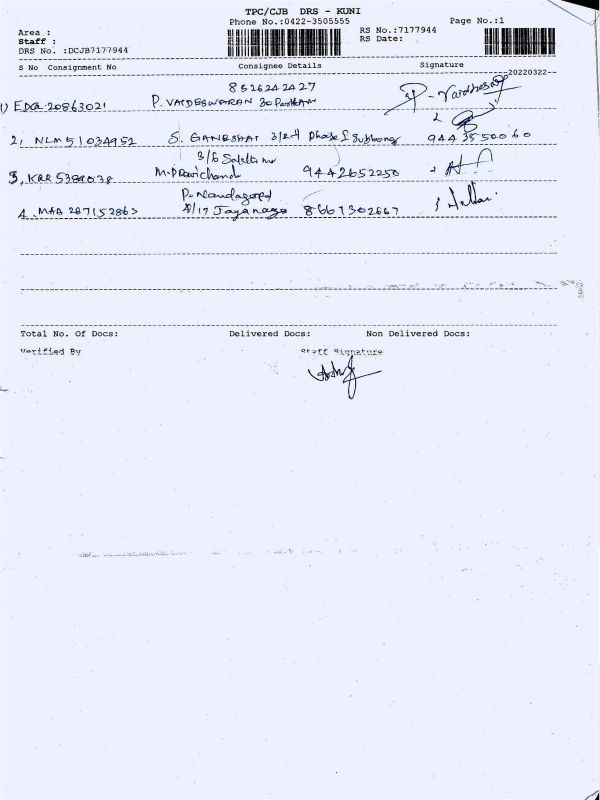 TPC/CJB DRS - KUNI
Phone No.:0422-3505555
Page No.:1
Area :
RS No.:7177944
Staff :
RS Date:
DRS No. :DCJB7177944
S No Consignment No Consignee Details Signature
20220322
8526242427
1) EDG 20863021 P. VAIDESWARAN 30
2, NLM 51034952 S. GANESHAI 3/24 Phase I 9443550060
3/6
3, KRR 5389038 M. P Ravichand 9442652250
P. Nandagopal
4. MAA 287152863 8/17 Jayanagr 8667302667
Total No. Of Docs: Delivered Docs: Non Delivered Docs:
Verified By Staff Signature